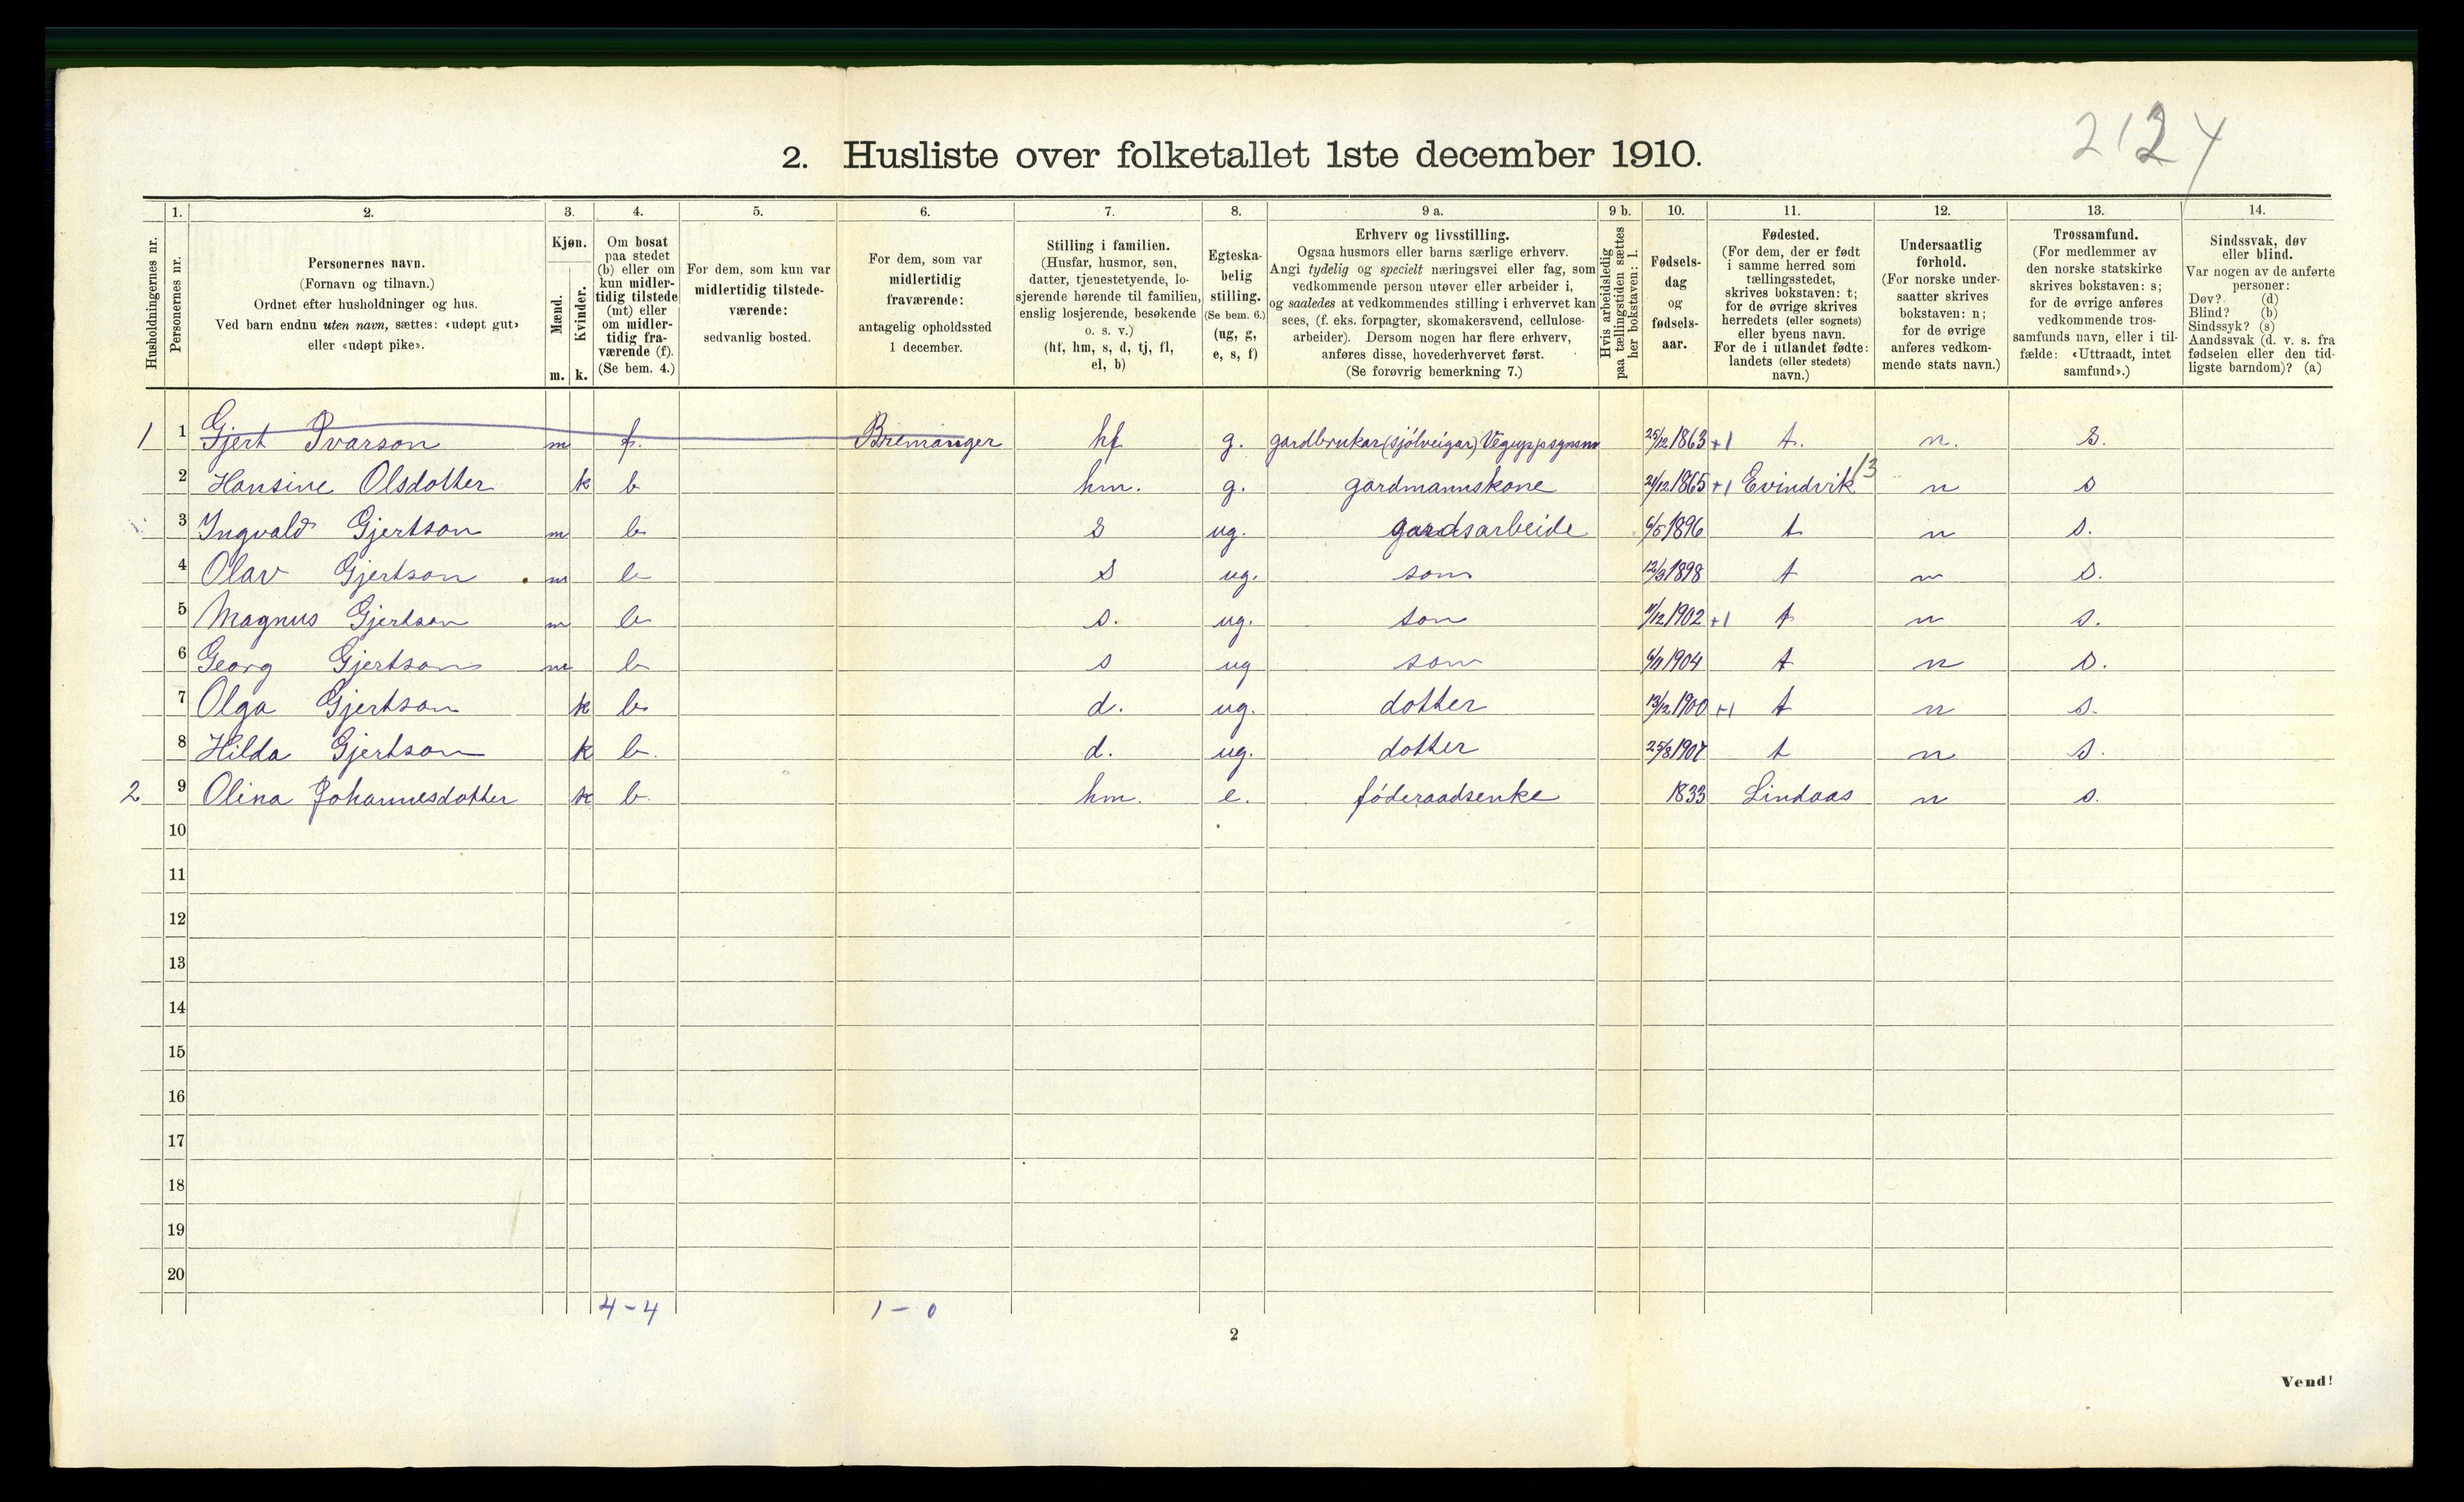 2124
2. Husliste over folketallet 1ste december 1910.
Husholdningernes nr.
1.
Personernes nr.
2.
Personernes navn.
(Fornavn og tilnavn.)
Ordnet efter husholdninger og hus.
Ved barn endnu uten navn, sættes: «udøpt gut»
eller «udøpt pike».
3.
Kjøn.
Mænd.
Kvinder.
m. k.
4.
Om bosat
paa stedet
(b) eller om
kun midler-
tidig tilstede
(mt) eller
om midler-
tidig fra-
værende (f).
(Se bem. 4.)
5.
For dem, som kun var
midlertidig tilstede-
værende:
sedvanlig bosted.
6.
For dem, som var
midlertidig
fraværende:
antagelig opholdssted
1 december.
7.
Stilling i familien.
(Husfar, husmor, søn,
datter, tjenestetyende, lo-
sjerende hørende til familien,
enslig losjerende, besøkende
o. s. v.)
(hf, hm, s, d, tj, fl,
el, b)
8.
Egteska-
belig
stilling.
(Se bem. 6.)
(ug, g,
e, s, f)
9 a.
Erhverv og livsstilling.
Ogsaa husmors eller barns særlige erhverv.
Angi tydelig og specielt næringsvei eller fag, som
vedkommende person utøver eller arbeider i,
og saaledes at vedkommendes stilling i erhvervet kan
sees, (f. eks. forpagter, skomakersvend, cellulose-
arbeider). Dersom nogen har flere erhverv,
anføres disse, hovederhvervet først.
(Se forøvrig bemerkning 7.)
9 b.
Hvis arbeidsledig
paa tællingstiden sættes
her bokstaven: l.
10.
Fødsels-
dag
og
fødsels-
aar.
11.
Fødested.
(For dem, der er født
i samme herred som
tællingsstedet,
skrives bokstaven: t;
for de øvrige skrives
herredets (eller sognets)
eller byens navn.
For de i utlandet fødte:
landets (eller stedets)
navn.)
12.
Undersaatlig
forhold.
(For norske under-
saatter skrives
bokstaven: n;
for de øvrige
anføres vedkom-
mende stats navn.)
13.
Trossamfund.
(For medlemmer av
den norske statskirke
skrives bokstaven: s;
for de øvrige anføres
vedkommende tros-
samfunds navn, eller i til-
fælde: «Uttraadt, intet
samfund».)
14.
Sindssvak, døv
eller blind.
Var nogen av de anførte
personer:
Døv? (d)
Blind? (b)
Sindssyk? (s)
Aandssvak (d. v. s. fra
fødselen eller den tid-
ligste barndom)? (a)
1 1 Gjert Ivarson m f. Bremanger hf g. gardbrukar (sjølveigar) 25/12 1863 +1 t. n. s.
2 Hansine Olsdotter k b hm. g. gardmannskone 21/12 1865 +1 Evindvik 13 n s
3 Ingvald Gjertson m b s ug. gardsarbeide 6/5 1896 t n s.
4 Olav Gjertson m b s ug. son 12/3 1898 t n s.
5 Magnus Gjertson m b s. ug. son 11/12 1902 +1 t n s.
6 Georg Gjertson m b s ug son 6/11 1904 t n s.
7 Olga Gjertson k b d. ug. dotter 13/12 1900 +1 t n s.
8 Hilda Gjertson k b. d. ug. dotter 25/3 1907 t n s.
2 9 Olina Johannesdotter k b. hm. e. føderaadsenke 1833 Lindaas n s.
10
11
12
13
14
15
16
17
18
19
20
4-4 1-0
2
Vend!